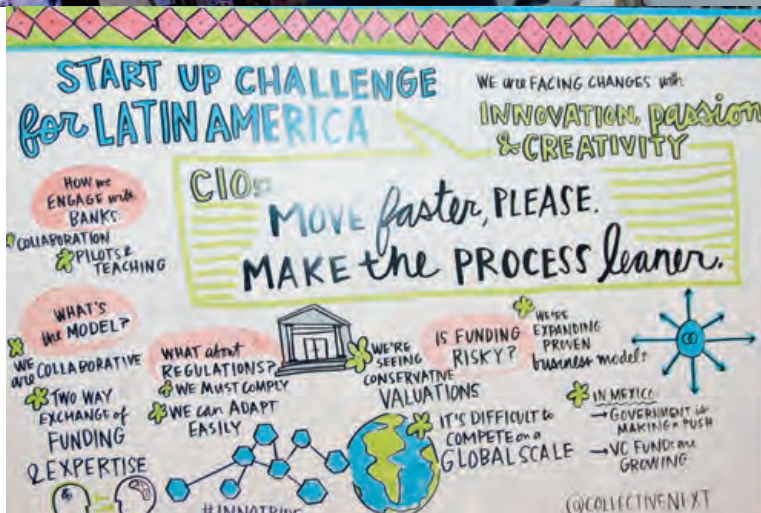 START UP CHALLENGE
for LATIN AMERICA
WE are FACING CHANGES with
INNOVATION, passion
& CREATIVITY
CIOs:
MOVE faster, PLEASE.
MAKE the PROCESS leaner.
HOW we
ENGAGE with
BANKS:
COLLABORATION
PILOTS &
TEACHING
WHAT'S
the MODEL?
WE are COLLABORATIVE
TWO WAY
EXCHANGE of
FUNDING
& EXPERTISE
WHAT about
REGULATIONS?
WE MUST COMPLY
WE can ADAPT
EASILY
WE'RE
SEEING
CONSERVATIVE
VALUATIONS
IS FUNDING
RISKY?
IT'S DIFFICULT to
COMPETE on a
GLOBAL SCALE
WE'RE
EXPANDING
PROVEN
business models
IN MEXICO
→ GOVERNMENT is
MAKING a PUSH
→ VC FUNDS are
GROWING
#INNOTRIBE
@COLLECTIVENEXT